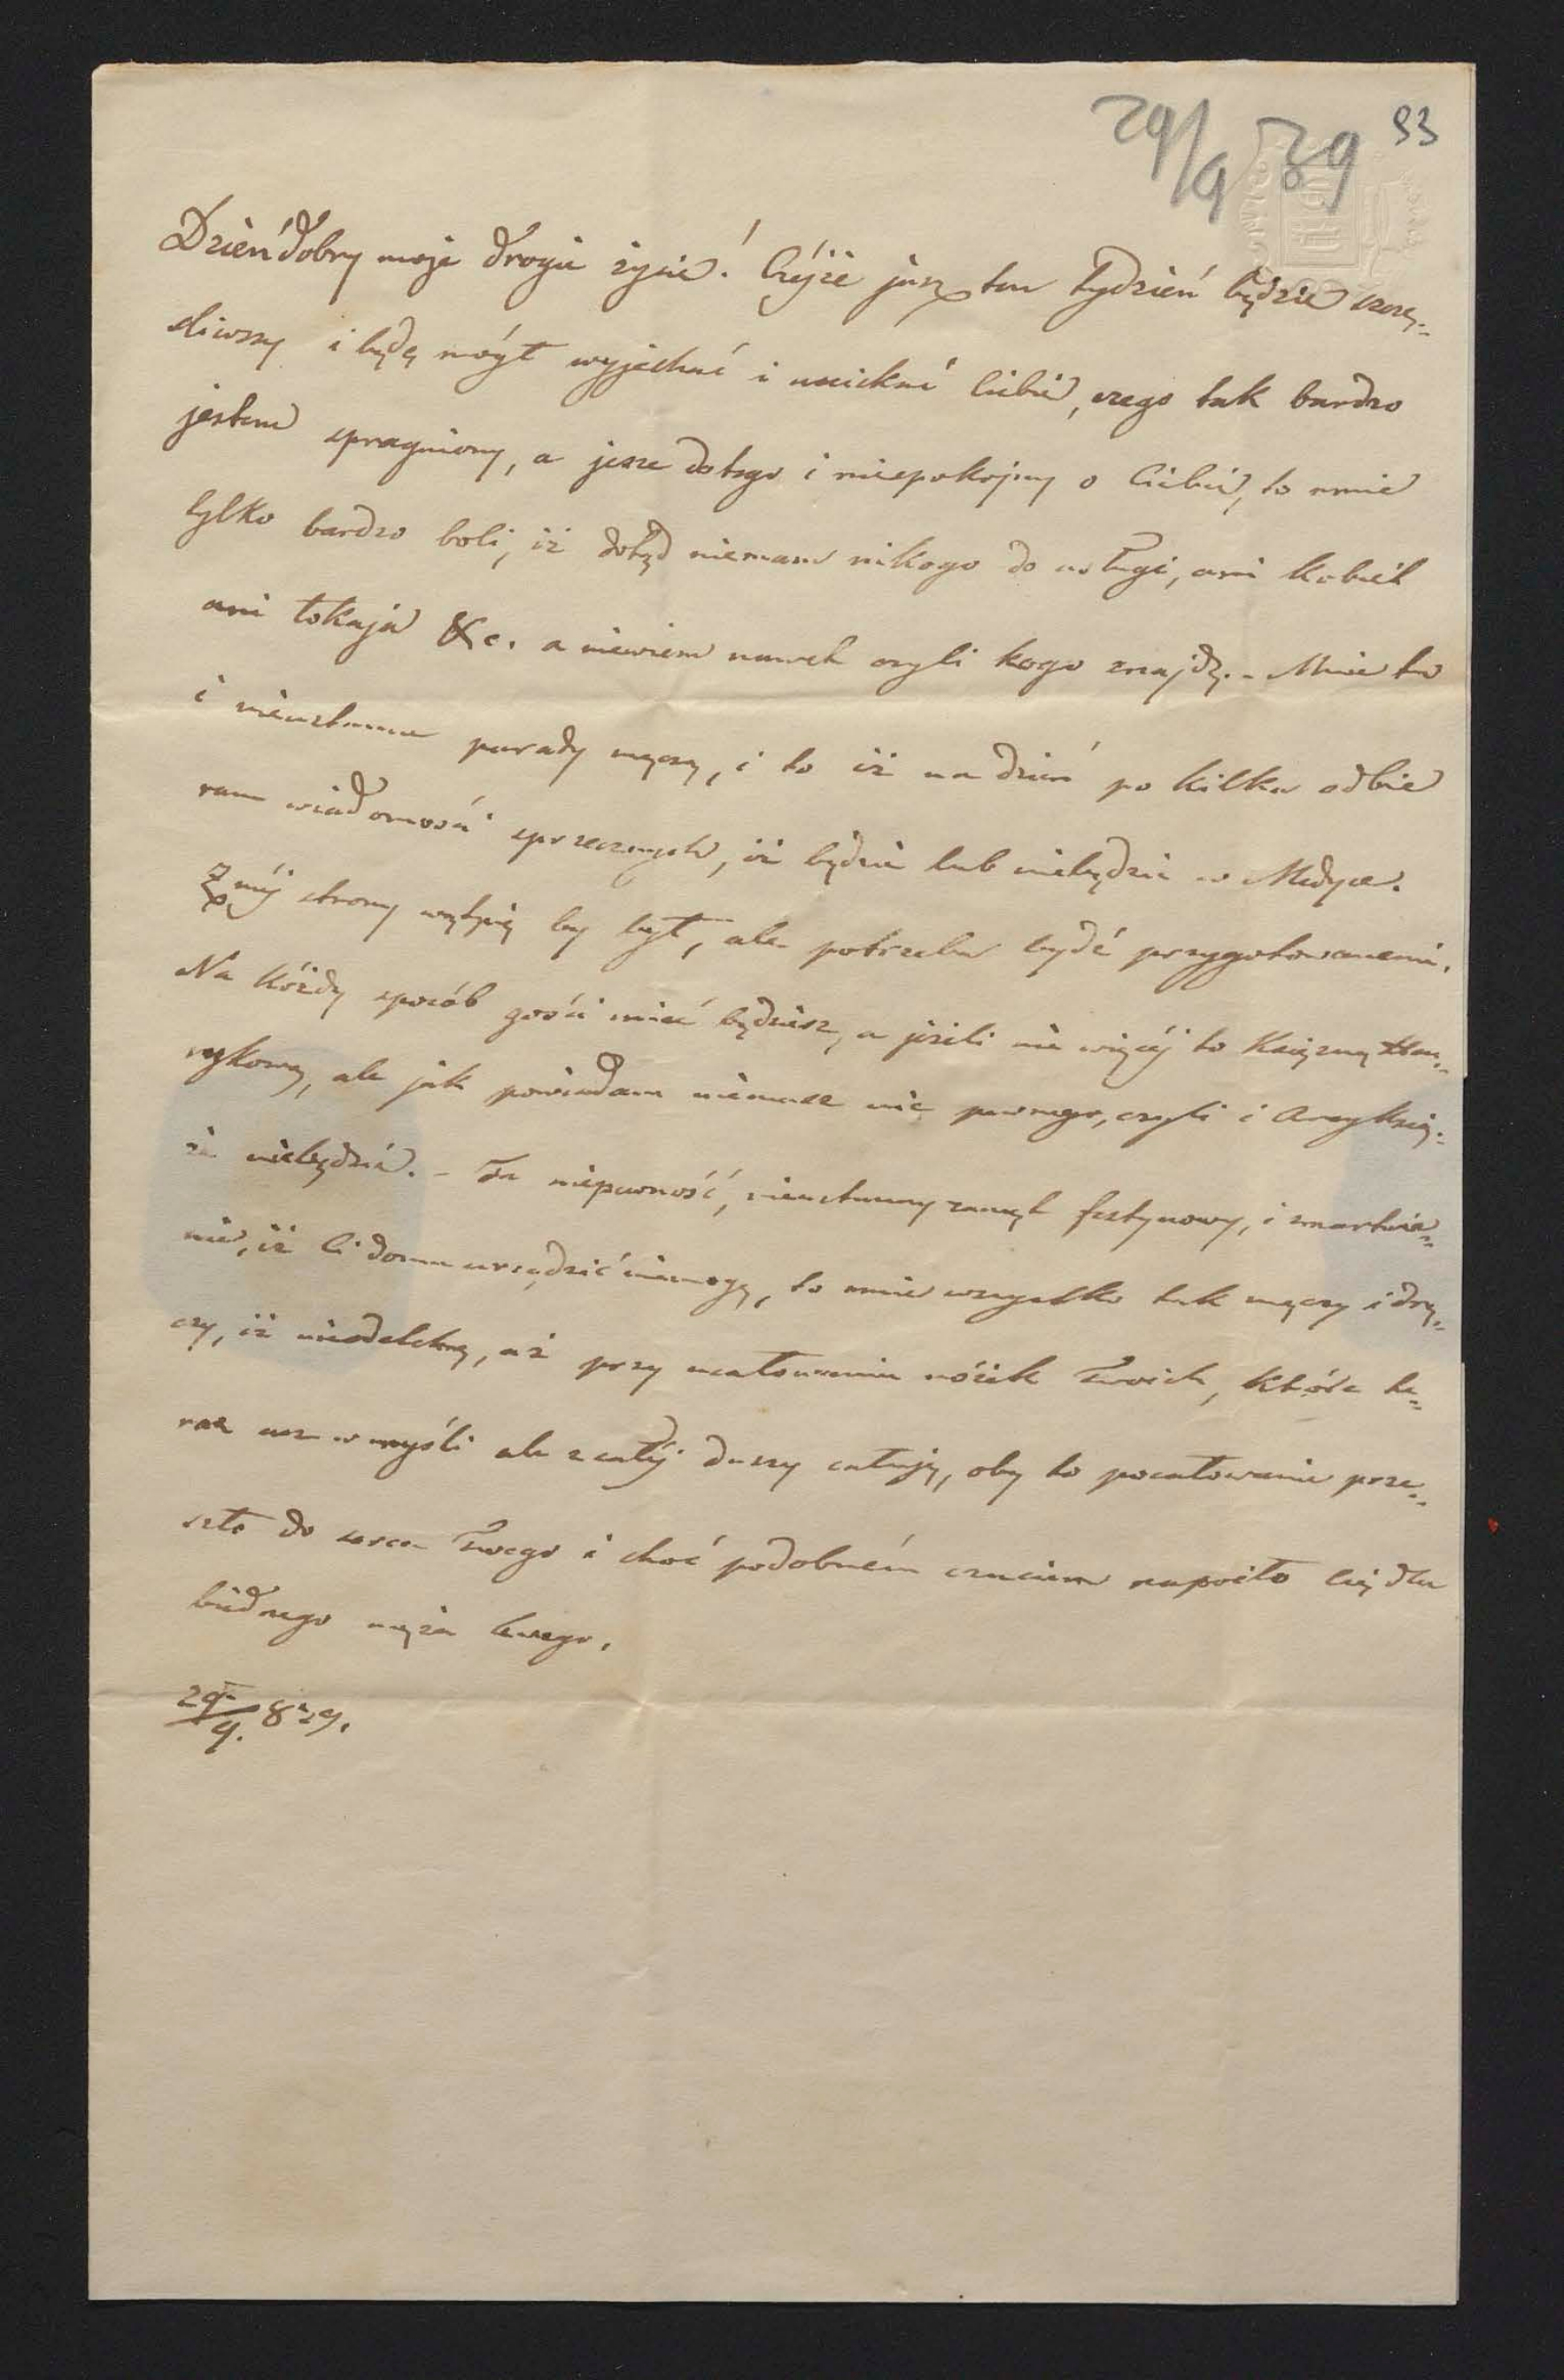 29/9 39 93
Dzień dobry moje drogie życie! Czyże jusz ten tydzień będzie szczę„
sliwszy i będę mógł wyjechać i uscisknć Ciebie, czego tak bardzo
jestem spragniony, a jesze dotego i niespokojny o Ciebie, to mnie
tylko bardzo boli, iż dotąd niemam nikogo do usługi, ani kobiét
ani lokaja &c. a niewiem nawet czyli kogo znajdę. – Mnie tu
i nieustanne parady męczą, i to iż na dzień po kilka odbie
ram wiadomości sprzecznych, iż będzie lub niebędzie w Medyce.
Z méj strony wątpię by był, ale potrzeba bydź przygotowanemi.
Na kóżdy sposób gości mieć będziesz, a jeżeli nie więcéj to Księżnę Hen„
rykową, ale jak powiadam niemasz nic pewnego, czyli i Arcyksią„
że niebędzie. – Ta niepewność, nieustanny zamęt festynowy, i zmartwie„
nie, iż Ci domu urządzić niemogę, to mnie wszystko tak męczy i drę„
czy, iż nieodetchnę, aż przy ucałowaniu nóżek Twoich, które te„
raz w myśli ale z całéj duszy całuję, oby to pocałowanie prze„
szło do serca Twego i choć podobném czuciem napoiło Cię dla
biédnego męża twego.
29/9. 839.